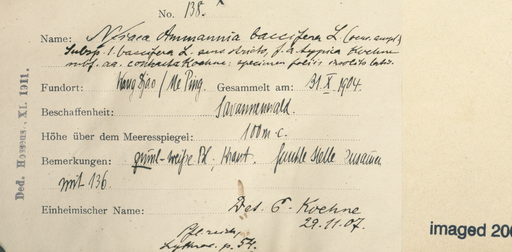 No. 138.
Name: Ammannia baccifera L. (sens. ampl.)
Subsp. 1. baccifera L. sens. strict., f. a. typica Koehne
subf. aa. contracta Koehne: specimen foliis insolito latis.
Fundort: / Me Ping. Gesammelt am: 31. X. 1904.
Beschaffenheit: Savannenwald.
Höhe über dem Meeresspiegel: 100 m c.
Bemerkungen: grünl-weiße Bl, Kraut. Stelle zusammen
mit 136.
Einheimischer Name: Det. E. Koehne
29.11.07.
Pflzreich
Lythrac. p. 54.
Ded. Hosseus, XI. 1911.
imaged 200